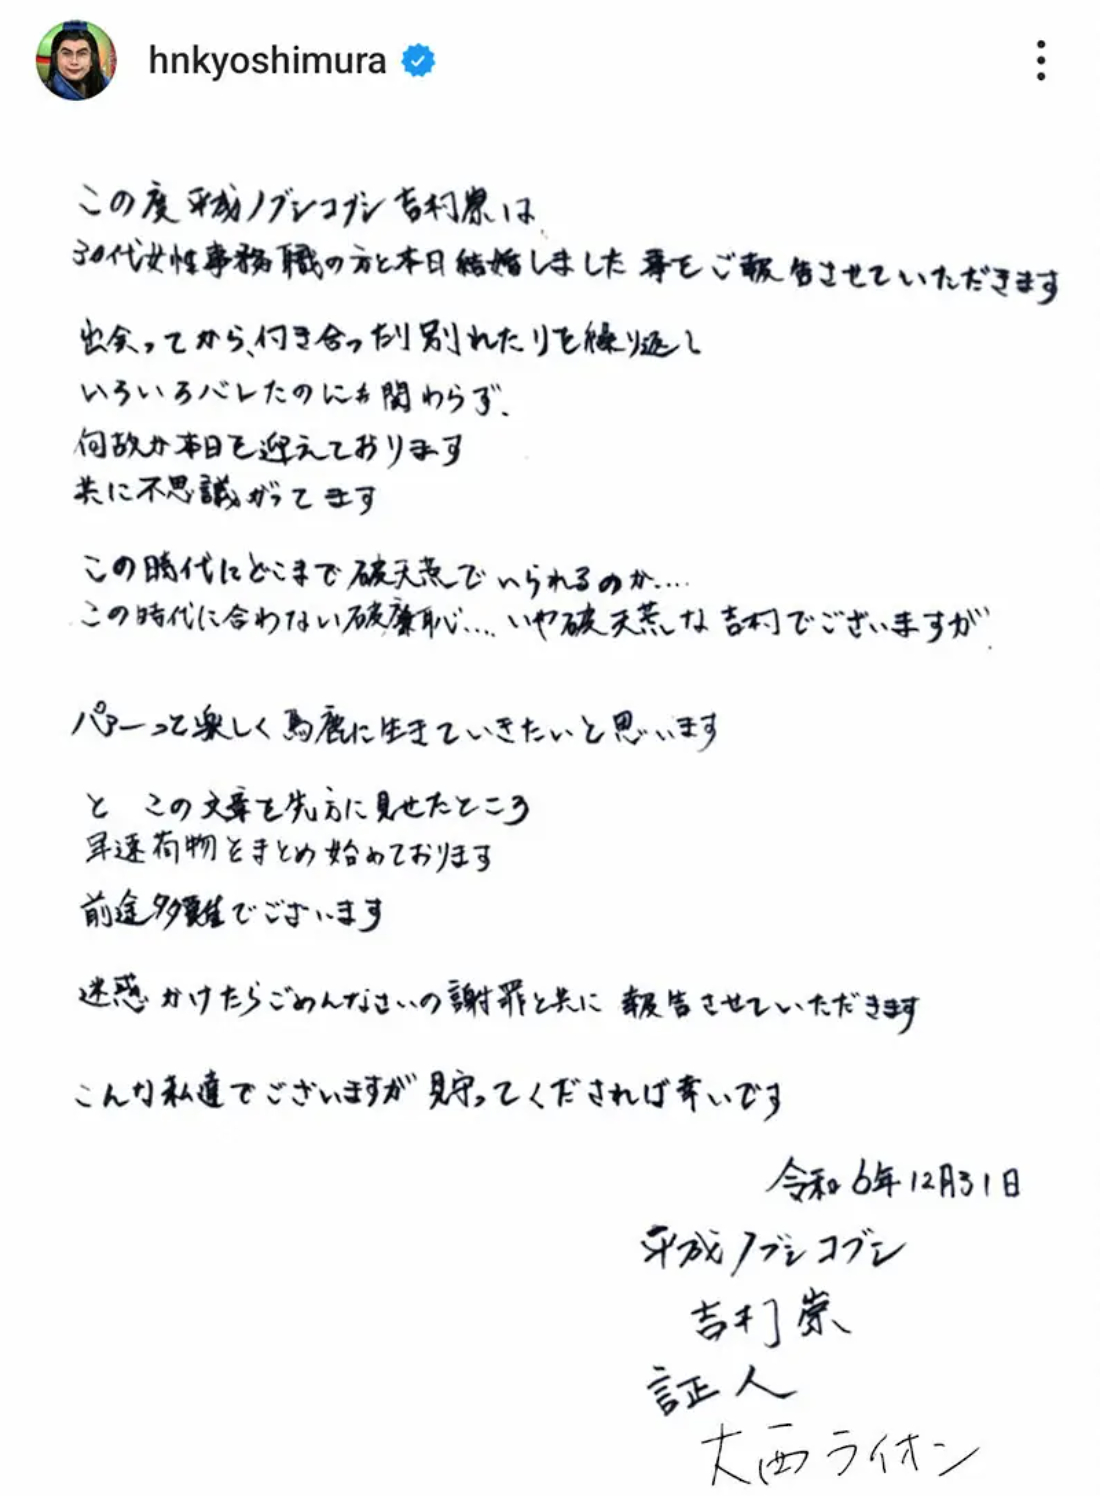 hnkyoshimura
この度 平成ノブシコブシ 吉村崇は、
30代女性事務職の方と本日結婚しました事をご報告させていただきます
出会ってから、付き合ったり別れたりを繰り返し
いろいろバレたのにも関わらず、
何故か本日を迎えております
共に不思議がってます
この時代にどこまで破天荒でいられるのか....
この時代に合わない破廉恥....いや破天荒な吉村でございますが
パァーっと楽しく馬鹿に生きていきたいと思います
と この文章を先方に見せたところ
早速荷物をまとめ始めております
前途多難でございます
迷惑かけたらごめんなさいの謝罪と共に 報告させていただきます
こんな私達でございますが見守ってくだされば幸いです
令和6年12月31日
平成ノブシコブシ
吉村崇
証人
大西ライオン